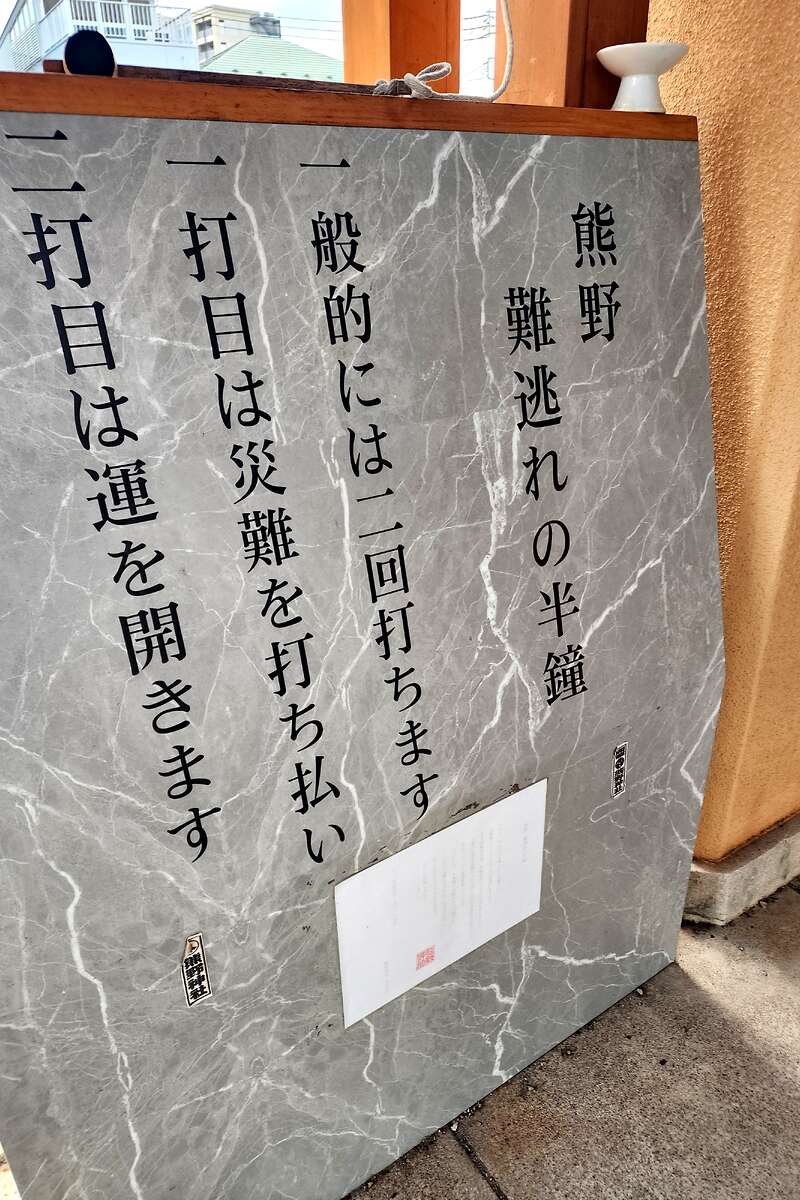 熊野
難逃れの半鐘
一般的には二回打ちます
一打目は災難を打ち払い
二打目は運を開きます
熊野神社